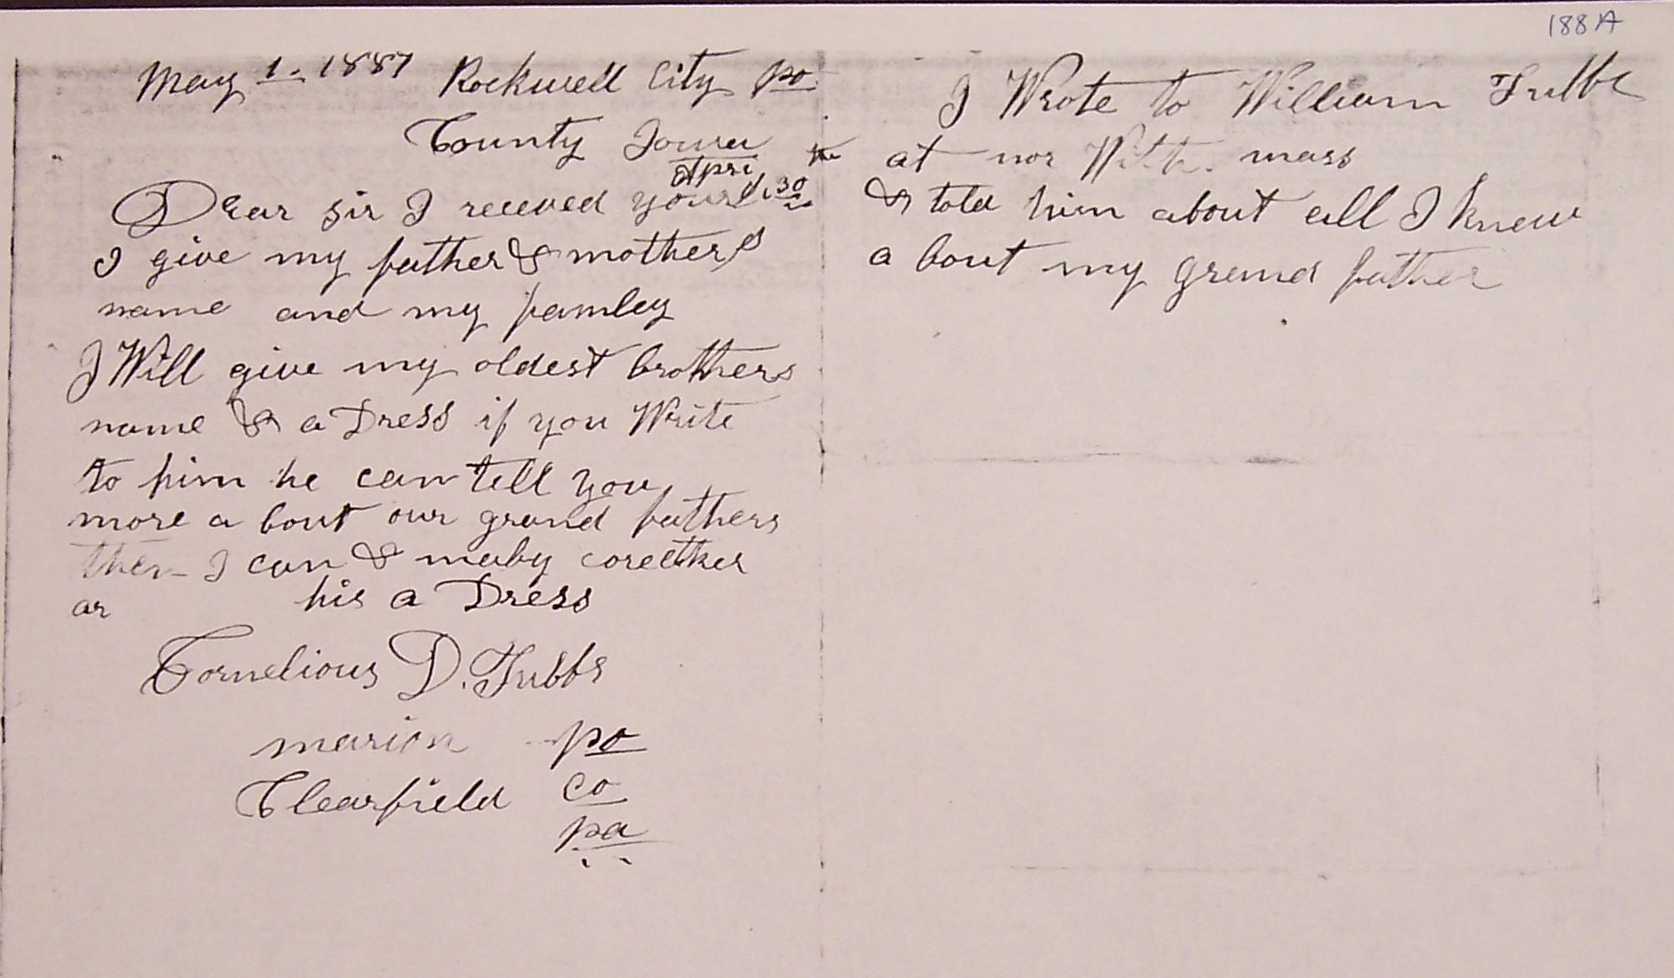 188 A
May 1. 1887 Rockwell City po
County Iowa
Dear sir I receved yours April 30
I give my father & mothers
name and my famley
I Will give my oldest brothers
name & a Dress if you Write
to him he can tell you
more a bout our grand fathers
then I can & maby corecther
ar his a Dress
Cornelious D. Tubbs
marion po
Clearfield co
pa
I Wrote to William Tubbs
at nor mass
& told him about all I knew
a bout my grand father